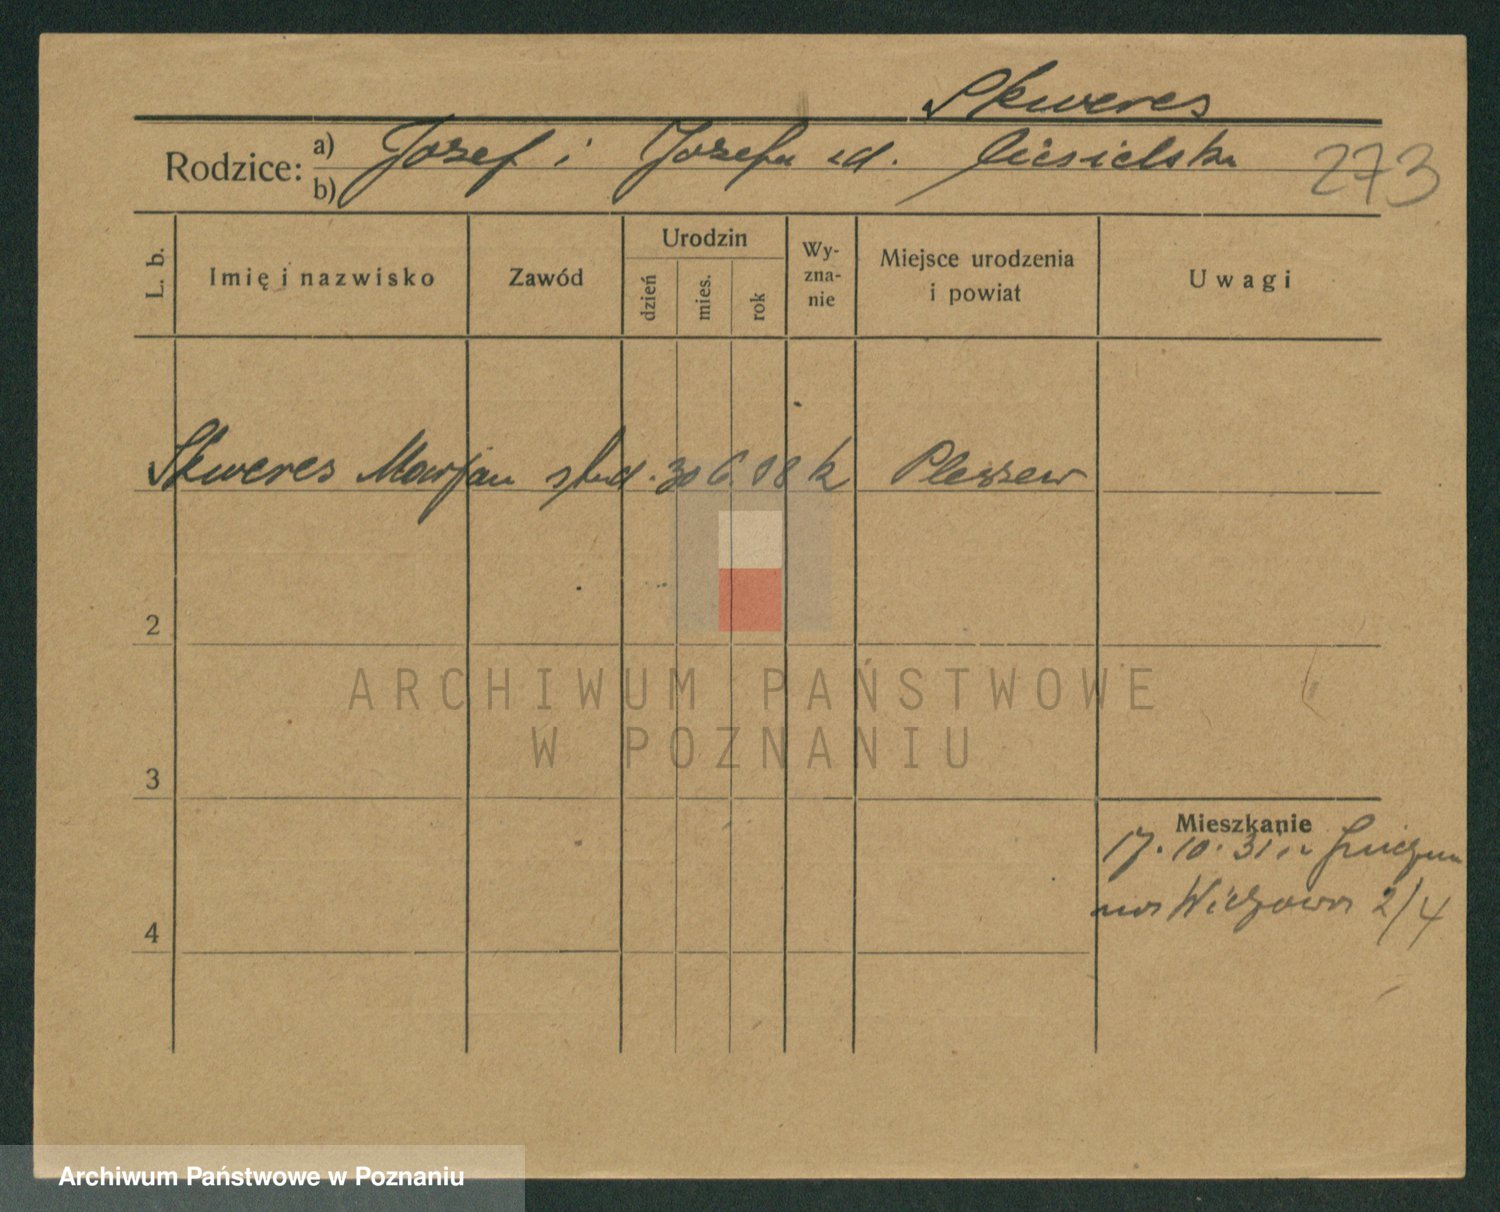 Skweres
Rodzice: a) Józef i Józefa zd. Ciesielska 273
b)
L. b. Imię i nazwisko Zawód Urodzin dzień mies. rok Wy-zna-nie Miejsce urodzenia i powiat Uwagi
Skweres Marjan stud. 30 6. 08 k Pleszew
2
ARCHIWUM PAŃSTWOWE
W POZNANIU
3
Mieszkanie
17. 10. 31
4 2/4
Archiwum Państwowe w Poznaniu